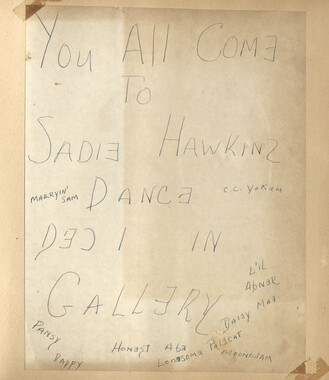 You All Come
To
Sadie Hawkins
Marryin' Sam
Dance
C.C. Yokum
Dec 1 in
L'il Abner
Gallery
Daisy Mae
Pansy
Pappy
Honest Abe
Lonesome Polecat